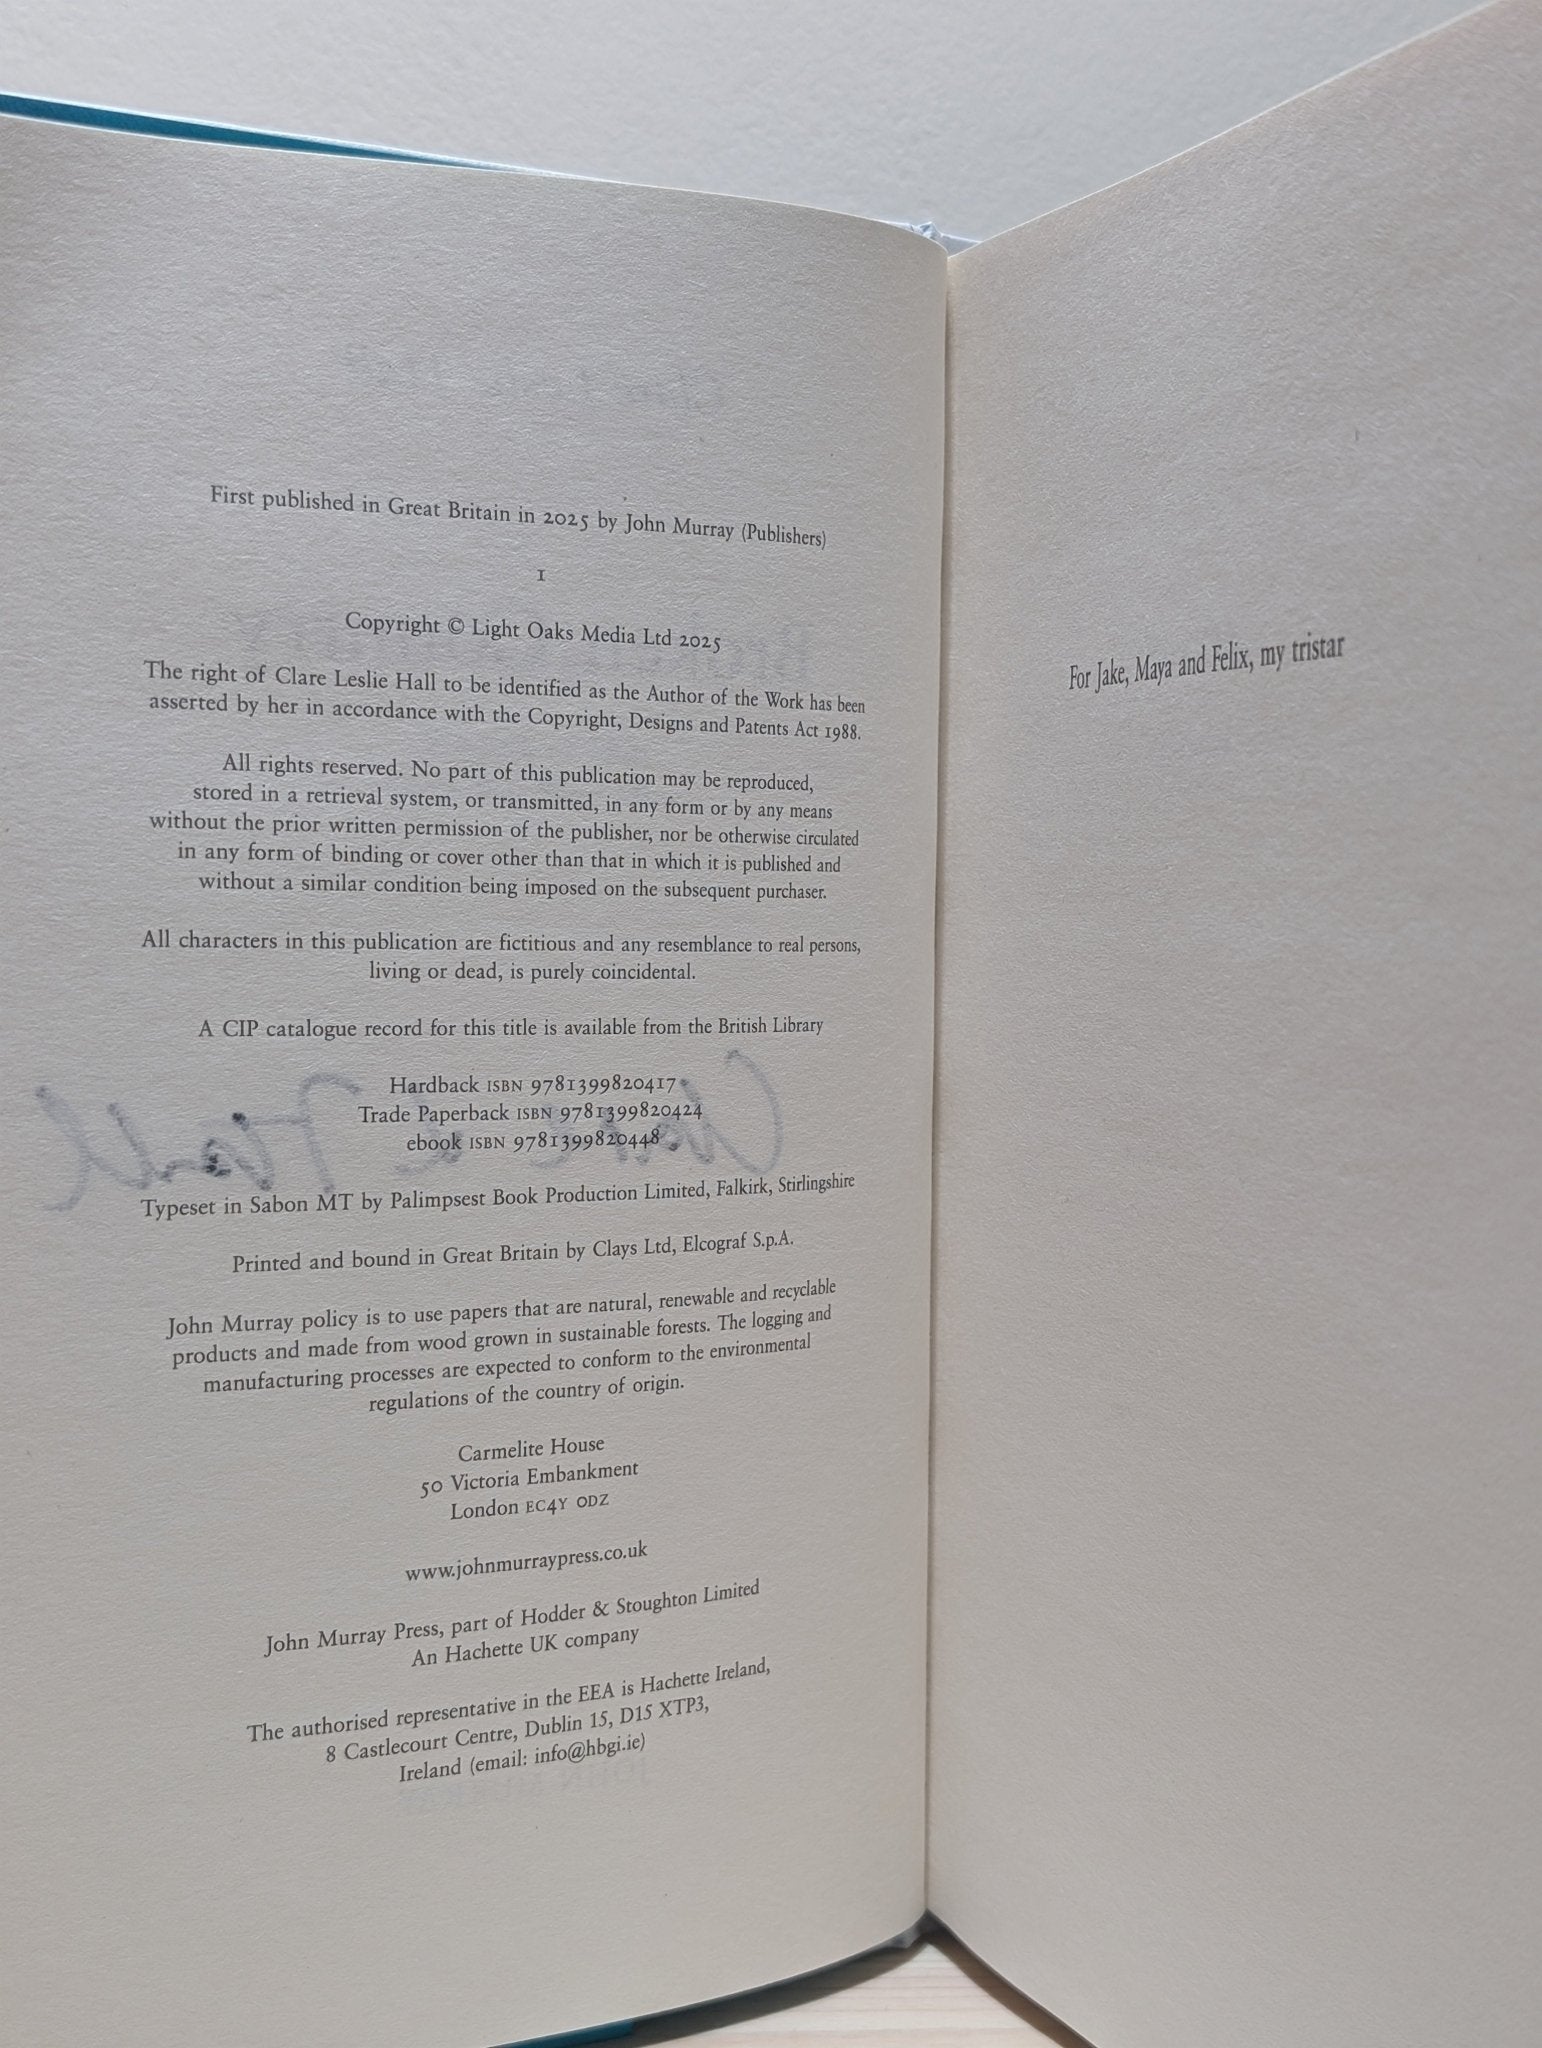 First published in Great Britain in 2025 by John Murray (Publishers)
1
Copyright © Light Oaks Media Ltd 2025
The right of Clare Leslie Hall to be identified as the Author of the Work has been
asserted by her in accordance with the Copyright, Designs and Patents Act 1988.
All rights reserved. No part of this publication may be reproduced,
stored in a retrieval system, or transmitted, in any form or by any means
without the prior written permission of the publisher, nor be otherwise circulated
in any form of binding or cover other than that in which it is published and
without a similar condition being imposed on the subsequent purchaser.
All characters in this publication are fictitious and any resemblance to real persons,
living or dead, is purely coincidental.
A CIP catalogue record for this title is available from the British Library
Hardback ISBN 9781399820417
Trade Paperback ISBN 9781399820424
ebook ISBN 9781399820448
Typeset in Sabon MT by Palimpsest Book Production Limited, Falkirk, Stirlingshire
Printed and bound in Great Britain by Clays Ltd, Elcograf S.p.A.
John Murray policy is to use papers that are natural, renewable and recyclable
products and made from wood grown in sustainable forests. The logging and
manufacturing processes are expected to conform to the environmental
regulations of the country of origin.
Carmelite House
50 Victoria Embankment
London EC4Y 0DZ
www.johnmurraypress.co.uk
John Murray Press, part of Hodder & Stoughton Limited
An Hachette UK company
The authorised representative in the EEA is Hachette Ireland,
8 Castlecourt Centre, Dublin 15, D15 XTP3,
Ireland (email: info@hbgi.ie)
For Jake, Maya and Felix, my tristar